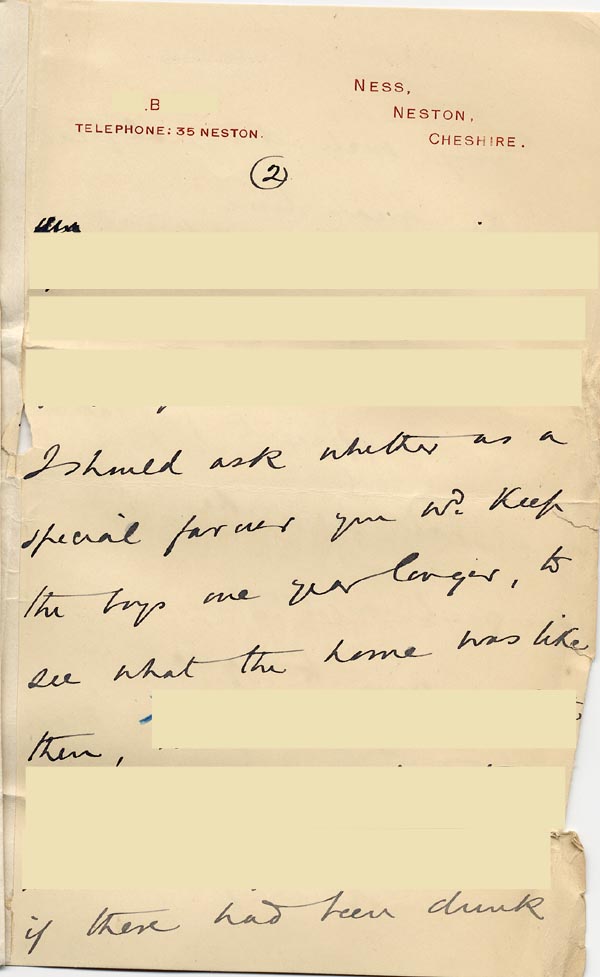 NESS,
NESTON,
CHESHIRE.
.B
TELEPHONE: 35 NESTON.
2
I should ask whether as a
special favour you wd. Keep
the boys one year longer, to
see what the home was like
then,
if there had been drunk